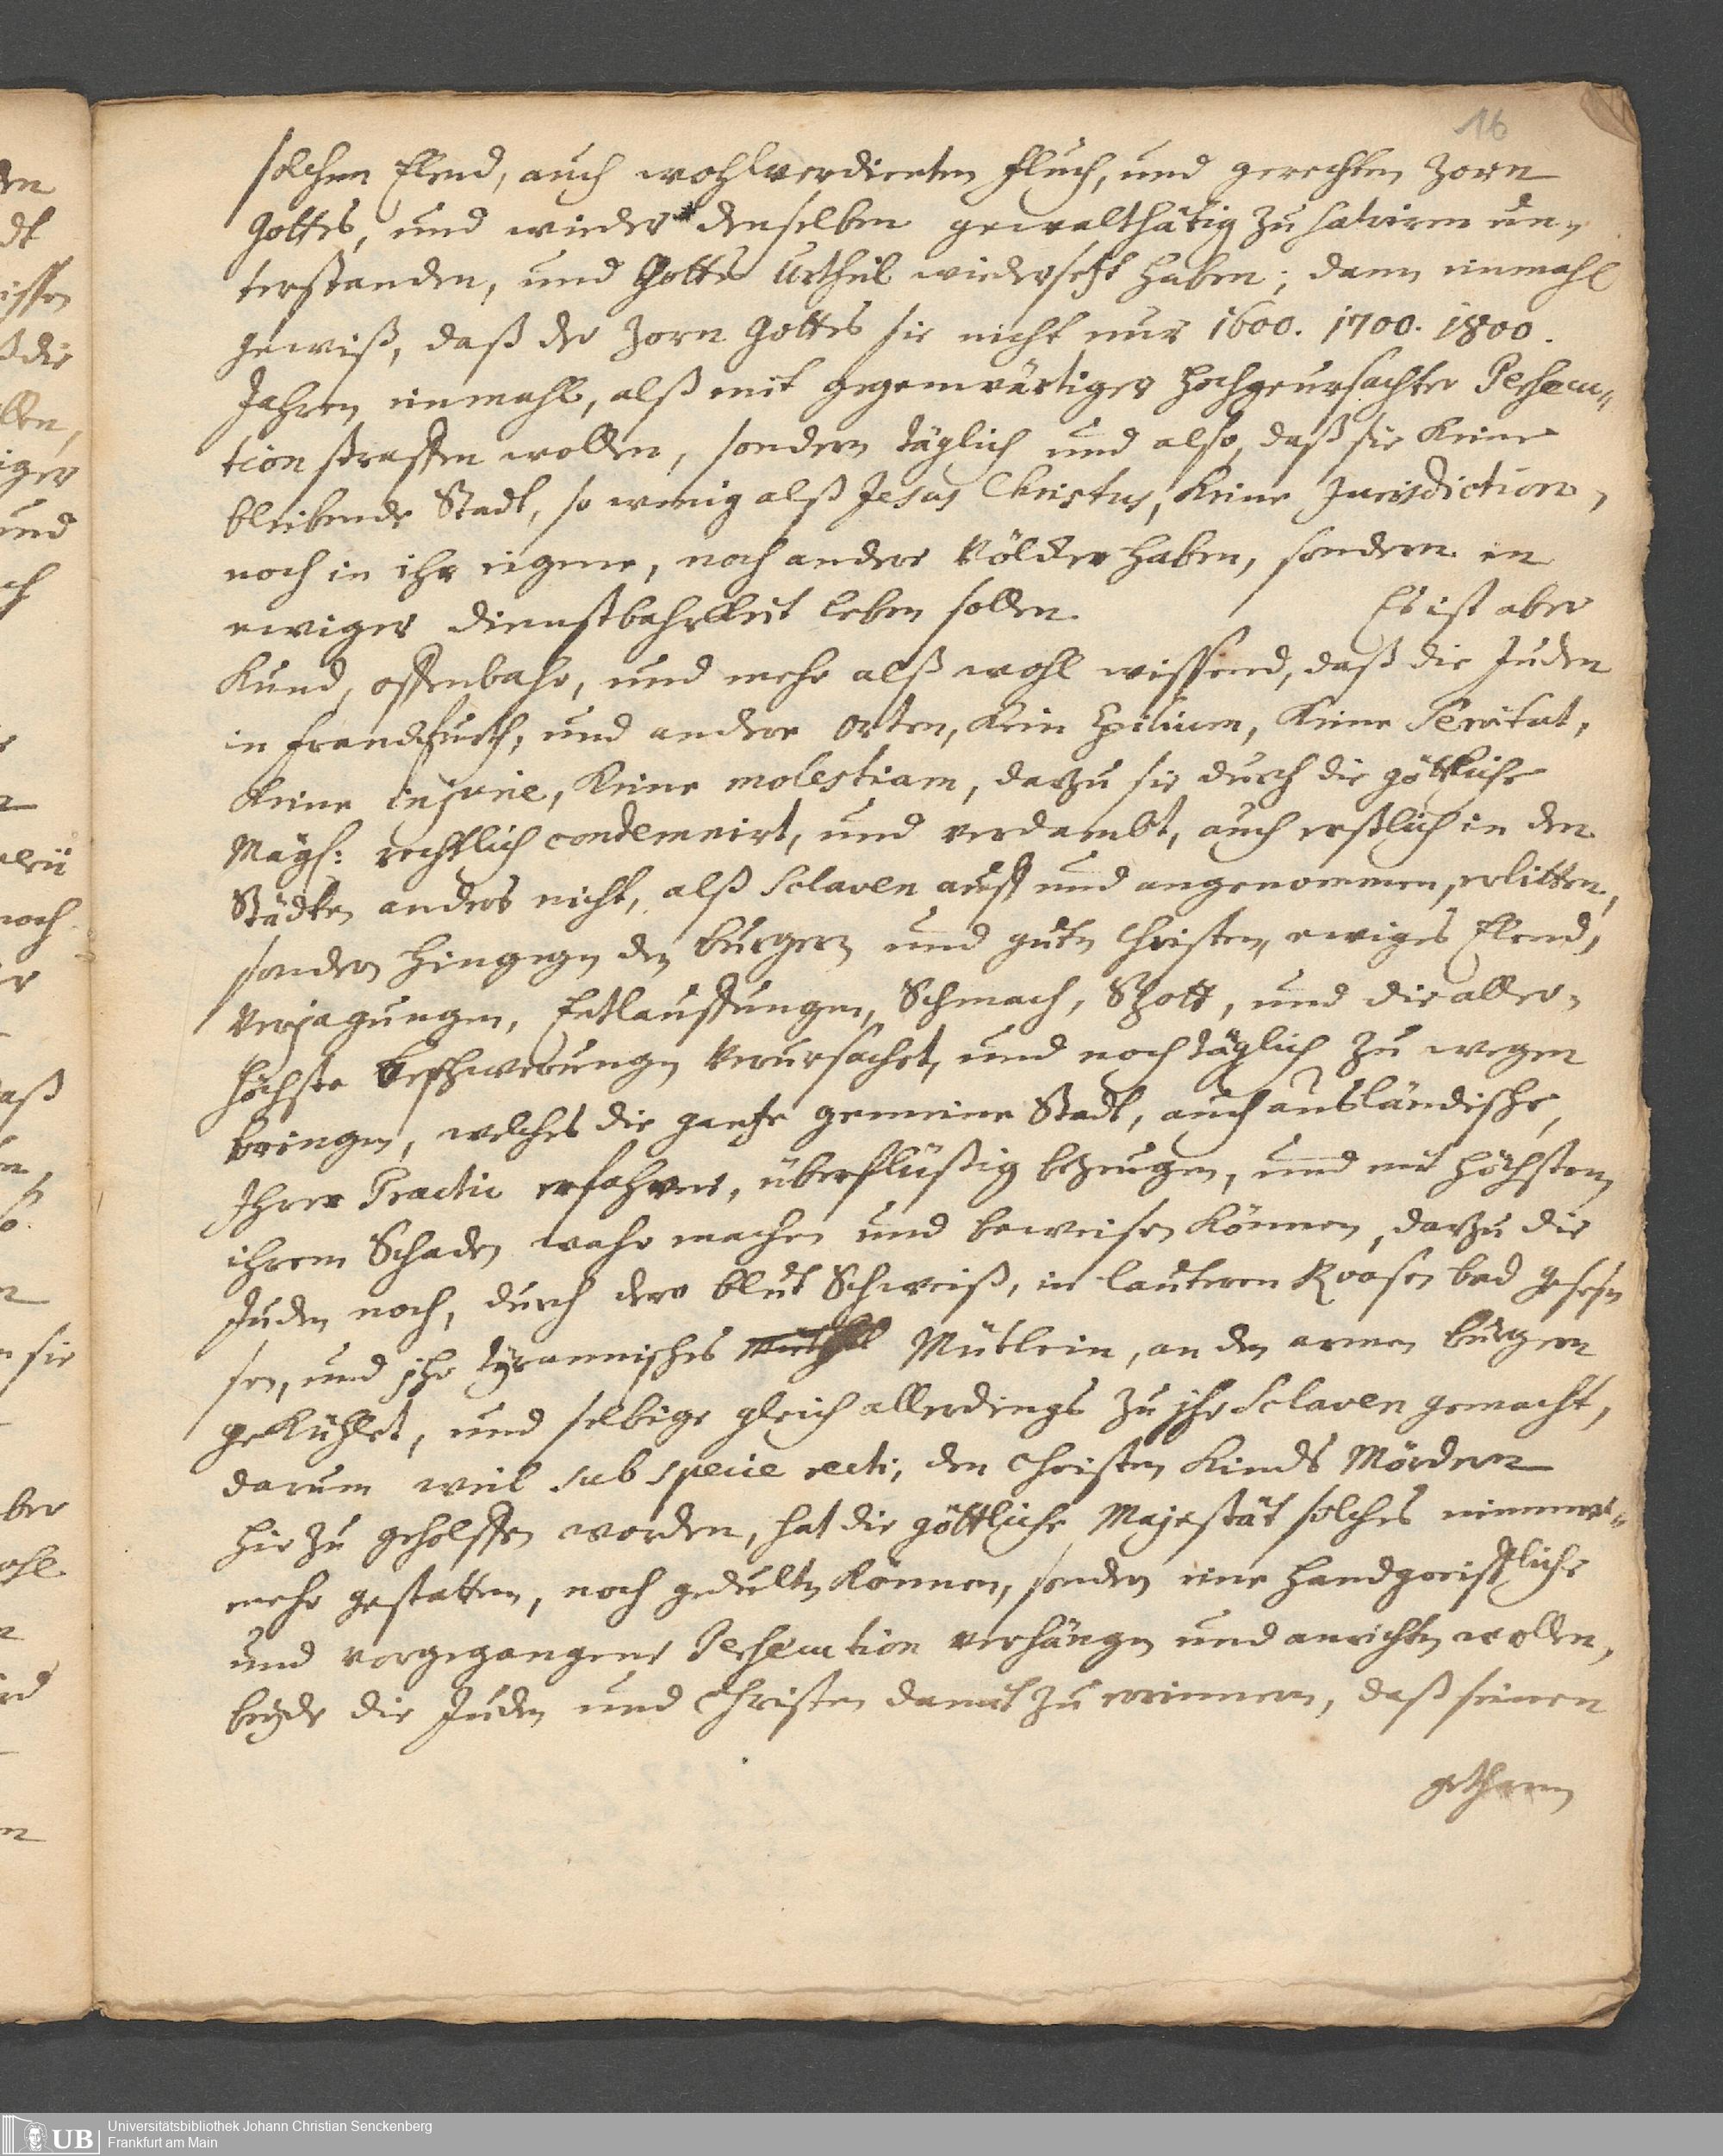 16
solchen Elend, auch wohlverdienten Fluch, und gerechten Zorn
Gottes, und wieder denselben gewalthätig zu salviren un-
terstanden, und Gottes Urtheil wiedersetzt haben; dann einmahl
gewiß, daß der Zorn Gottes sie nicht nur 1600. 1700. 1800.
Jahren einmahl, alß mit gegenwärtiger hochgeursachter Persecu-
tion straffen wollen, sondern täglich und also, daß sie keine
bleibende Stadt, so wenig alß Jesus Christus, keine Jurisdiction,
noch in ihr eigene, noch andere Völcker haben, sondern in
ewiger dienstbahrkeit leben sollen. Es ist aber
Kund, offenbahr, und mehr alß wohl wissend, daß die Juden
in Franckfurth, und andere Orten, kein Exilium, keine
keine injurie, keine molestiam, darzu sie durch die göttliche
Mayst: rechtlich condemnirt, und verdambt, auch erstlich in den
Städten anders nicht, alß Sclaven auff und angenommen, erlitten,
sondern hingegen den Burgern und guten Christen, ewiges Elend,
Verjagungen, Entlauffungen, Schmach, Spott, und die aller-
höchste beschwerungen verursachet, und noch täglich zu wegen
bringen, welches die gantze gemeine Stadt, auch ausländische,
Ihrer Practic erfahren, überflüßig bezeugen, und mit höchstem
ihrem Schaden wahr machen und beweisen können, darzu die
Juden noch, durch der blut Schweiß, in lauteren Roosen bad geses-
sen, und ihr tyrannisches Mütlein, an den armen burgern
gekühlet, und selbige gleich allerdings zu ihr Sclaven gemacht,
darum weil sub specie recti, den Christen Kinds Mördern
hie zu geholffen worden, hat die göttliche Majestät solches nimmer-
mehr gestatten, noch gedulten können, sondern eine handgreiffliche
und vorgegangene Persecution verhängen und anrichten wollen,
beyde die Juden und Christen damit zu errinnern, daß seinen
Universitätsbibliothek Johann Christian Senckenberg
UB Frankfurt am Main